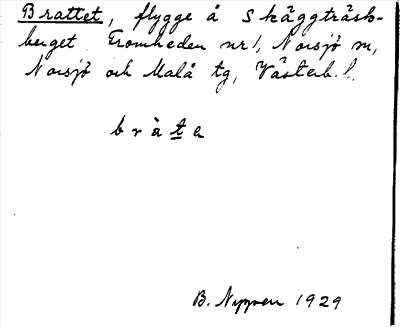 Brattet, flygge å Skäggträsk-
berget. Fromheden nr 1, Norsjö sn,
Norsjö och Malå tg, Västerb. l.
bràte
B. Nygren 1929